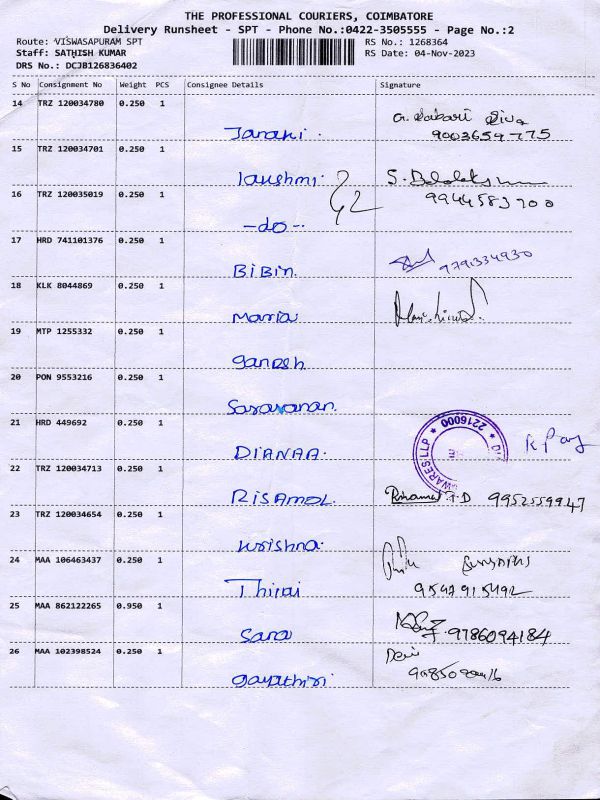 THE PROFESSIONAL COURIERS, COIMBATORE
Delivery Runsheet - SPT - Phone No.:0422-3505555 - Page No.:2
Route: VISWASAPURAM SPT
RS No.: 1268364
Staff: SATHISH KUMAR
RS Date: 04-Nov-2023
DRS No.: DCJB126836402
S No Consignment No Weight PCS Consignee Details Signature
14 TRZ 120034780 0.250 1
Janani. 9003659775
15 TRZ 120034701 0.250 1
laxshmi. S.
16 TRZ 120035019 0.250 1 9944583700
-do-
17 HRD 741101376 0.250 1
BiBin. 9791334930
18 KLK 8044869 0.250 1
Maria
19 MTP 1255332 0.250 1
ganesh
20 PON 9553216 0.250 1
Saravanan.
21 HRD 449692 0.250 1
2216000
WARES LLP
DIANAA.
22 TRZ 120034713 0.250 1
RISAMOL. 9952559947
23 TRZ 120034654 0.250 1
krishna.
24 MAA 106463437 0.250 1
Thirai 9547915492
25 MAA 862122265 0.950 1
Sara 9786094184
26 MAA 102398524 0.250 1
gayathiri